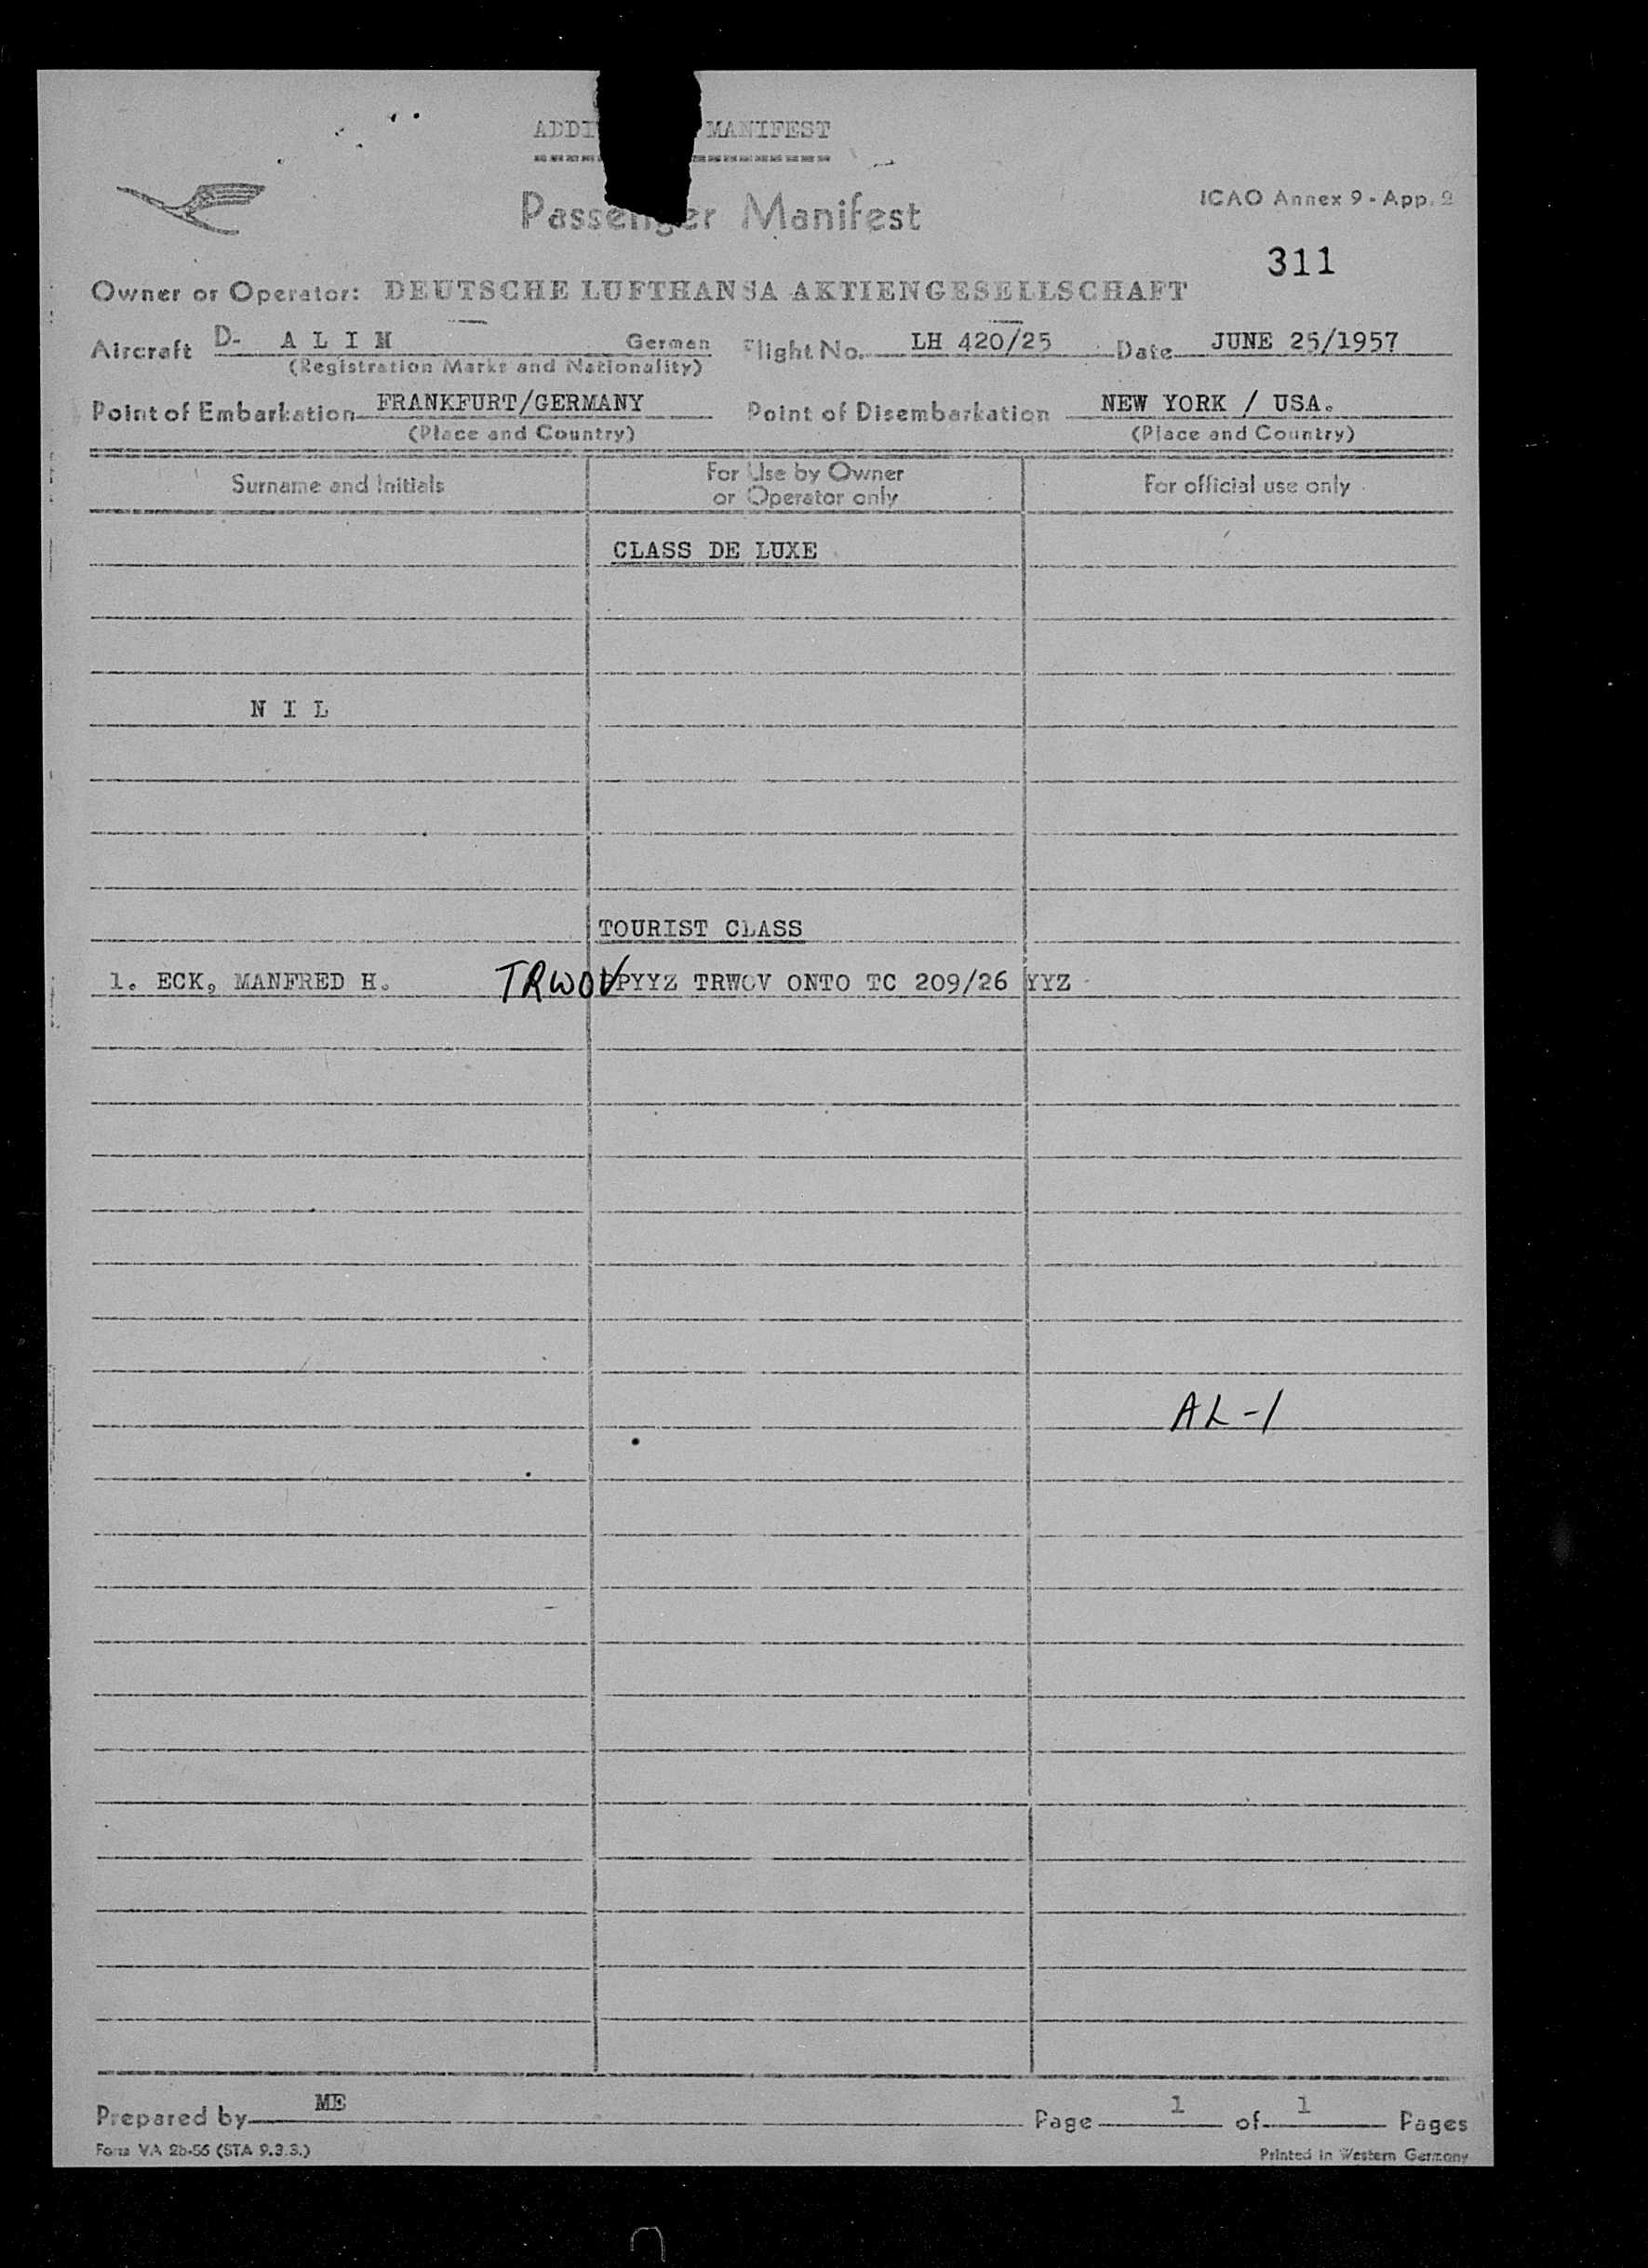 ADDI MANIFEST
Passenger Manifest
ICAO Annex 9 - App. 2
311
Owner or Operator: DEUTSCHE LUFTHANSA AKTIENGESELLSCHAFT
Aircraft D- A L I N German Flight No. LH 420/25 Date JUNE 25/1957
(Registration Marks and Nationality)
Point of Embarkation FRANKFURT/GERMANY Point of Disembarkation NEW YORK / USA.
(Place and Country) (Place and Country)
Surname and Initials For Use by Owner or Operator only For official use only
CLASS DE LUXE
N I L
TOURIST CLASS
1. ECK, MANFRED H. TRWOV PYYZ TRWOV ONTO TC 209/26 YYZ
AL-1
Prepared by ME Page 1 of 1 Pages
Form VA 2b-56 (STA 9.3.3.) Printed in Western Germany